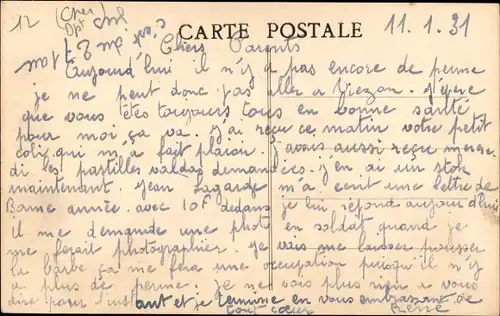 12
(Cher
CARTE POSTALE
11.1.31
Chers Parents
Aujourd'hui il n'y a pas encore de perme
je ne peut donc pas aller a Vierzon. J'éspère
que vous êtes toujours tous en bonne santé
pour moi ça va. j'ai reçu ce matin votre petit
coli qui m'a fait plaisir. J'avais aussi reçu mercre
di les partilles valdas demandées. j'en ai un stok
maintenant. Jean Lagarde m'a ecrit une lettre de
Bonne année. avec 10F dedans je lui répond aujourd'hui
il me demande une photo en soldat quand je
me ferait photographier. je vais me laisser pousser
la barbe ça me fera une occupation puisqu'il n'y
a plus de perme. Je ne vous plus rien a vous
dire pour l'instant et je termine en vous embrassant de
tout cœur René